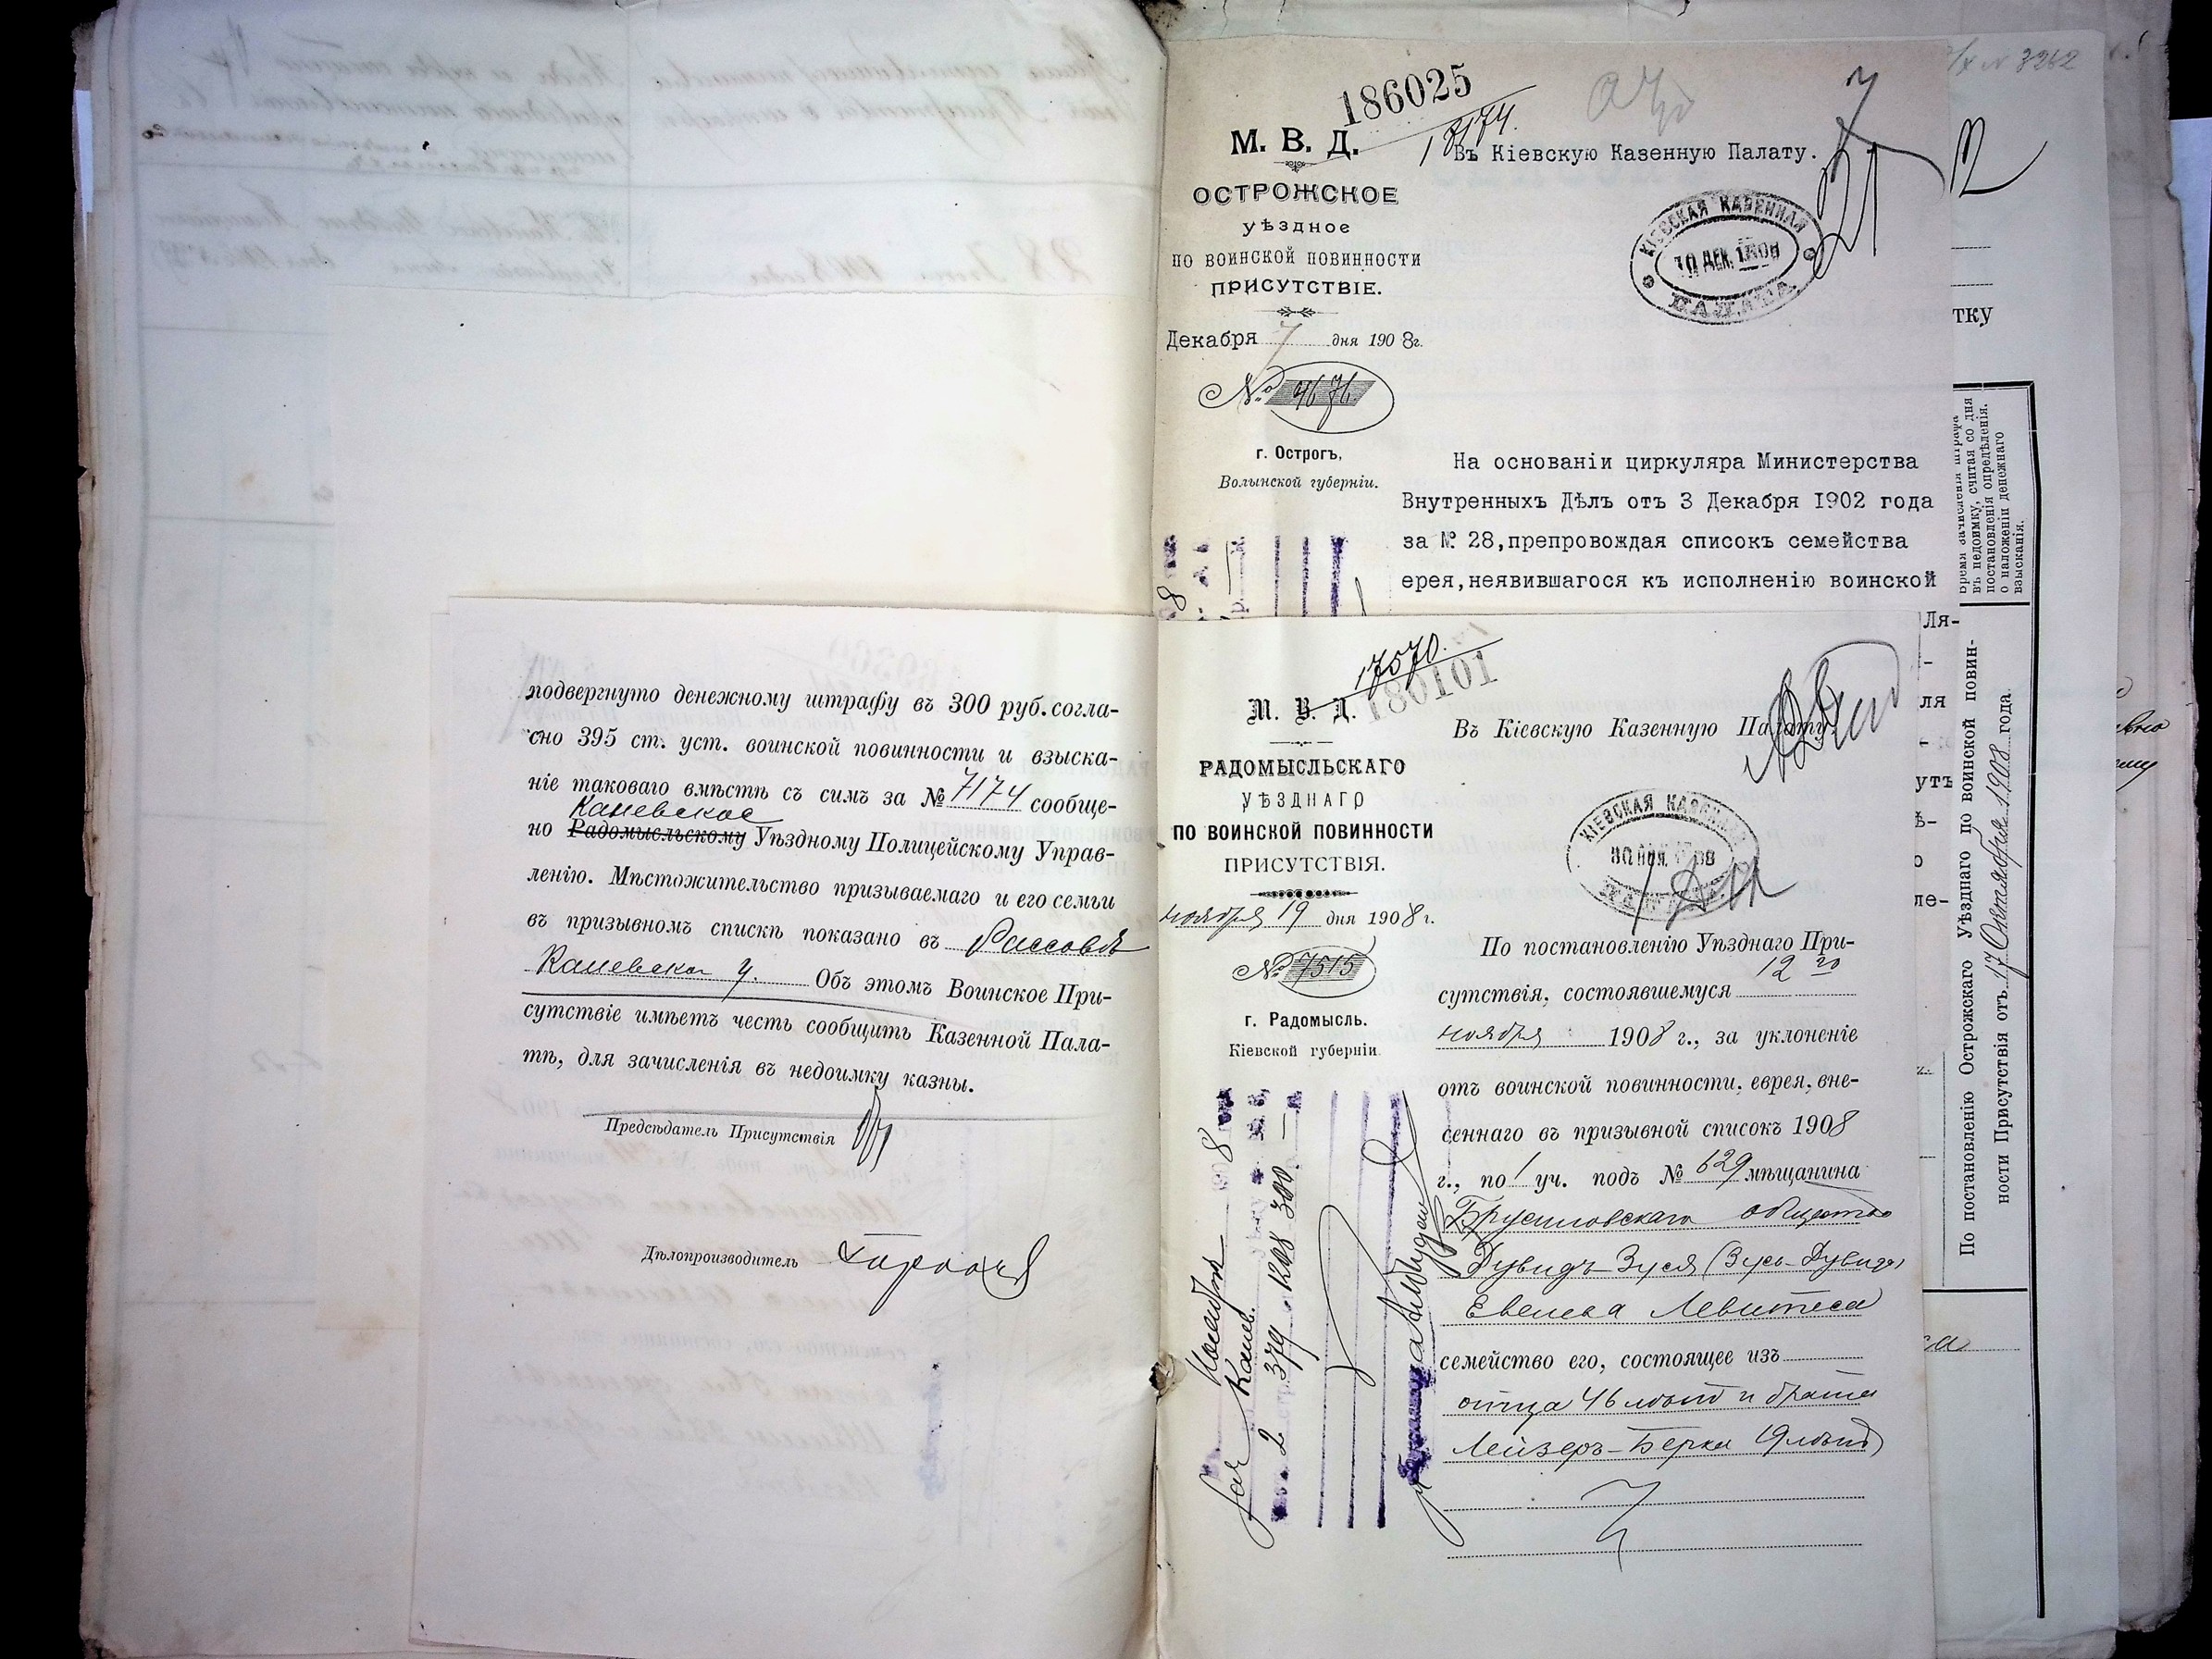 подвергнуто денежному штрафу въ 300 руб. согла-
сно 395 ст. уст. воинской повинности и взыска-
ніе таковаго вмѣстѣ съ симъ за № 7174 сообще-
Каневское
но Радомысльскому Уѣздному Полицейскому Управ-
ленію. Мѣстожительство призываемаго и его семьи
въ призывномъ спискѣ показано въ
Каневска у. Объ этомъ Воинское При-
сутствіе имѣетъ честь сообщить Казенной Пала-
тѣ, для зачисленія въ недоимку казны.
Предсѣдатель Присутствія
Дѣлопроизводитель
186025
М. В. Д.
ОСТРОЖСКОЕ
уѣздное
ПО ВОИНСКОЙ ПОВИННОСТИ
ПРИСУТСТВІЕ.
Декабря 7 дня 1908г.
№ 4676
г. Острогъ,
Волынской губерніи.
Въ Кіевскую Казенную Палату.
КІЕВСКАЯ КАЗЕННАЯ
10 ДЕК. 1908
ПАЛАТА
На основаніи циркуляра Министерства
Внутренныхъ Дѣлъ отъ 3 Декабря 1902 года
за № 28,препровождая списокъ семейства
ерея,неявившагося къ исполненію воинской
17570.
180101
М. В. Д.
РАДОМЫСЛЬСКАГО
УѢЗДНАГО
ПО ВОИНСКОЙ ПОВИННОСТИ
ПРИСУТСТВІЯ.
ноября 19 дня 1908 г.
№ 7515
г. Радомысль.
Кіевской губерніи.
Въ Кіевскую Казенную Палату.
КІЕВСКАЯ КАЗЕННАЯ
ПАЛАТА
По постановленію Уѣзднаго При-
сутствія, состоявшемуся 12 го
ноября 1908 г., за уклоненіе
отъ воинской повинности, еврея, вне-
сеннаго въ призывной списокъ 1908
г., по 1 уч. подъ № 629 мѣщанина
Брусиловскаго общества
Дувидъ-Зуся (Зусь-Дувидъ)
Евелева Левитеса
семейство его, состоящее изъ
отца 46 лѣтъ и брата
Лейзеръ-Берка 19 лѣтъ
3262
тку
время зачисленія штрафа
въ недоимку, считая со дня
постановленія опредѣленія.
о наложеніи денежнаго
взысканія.
По постановленію Острожскаго Уѣзднаго по воинской повин-
ности Присутствія отъ 17 Октября 1908 года.